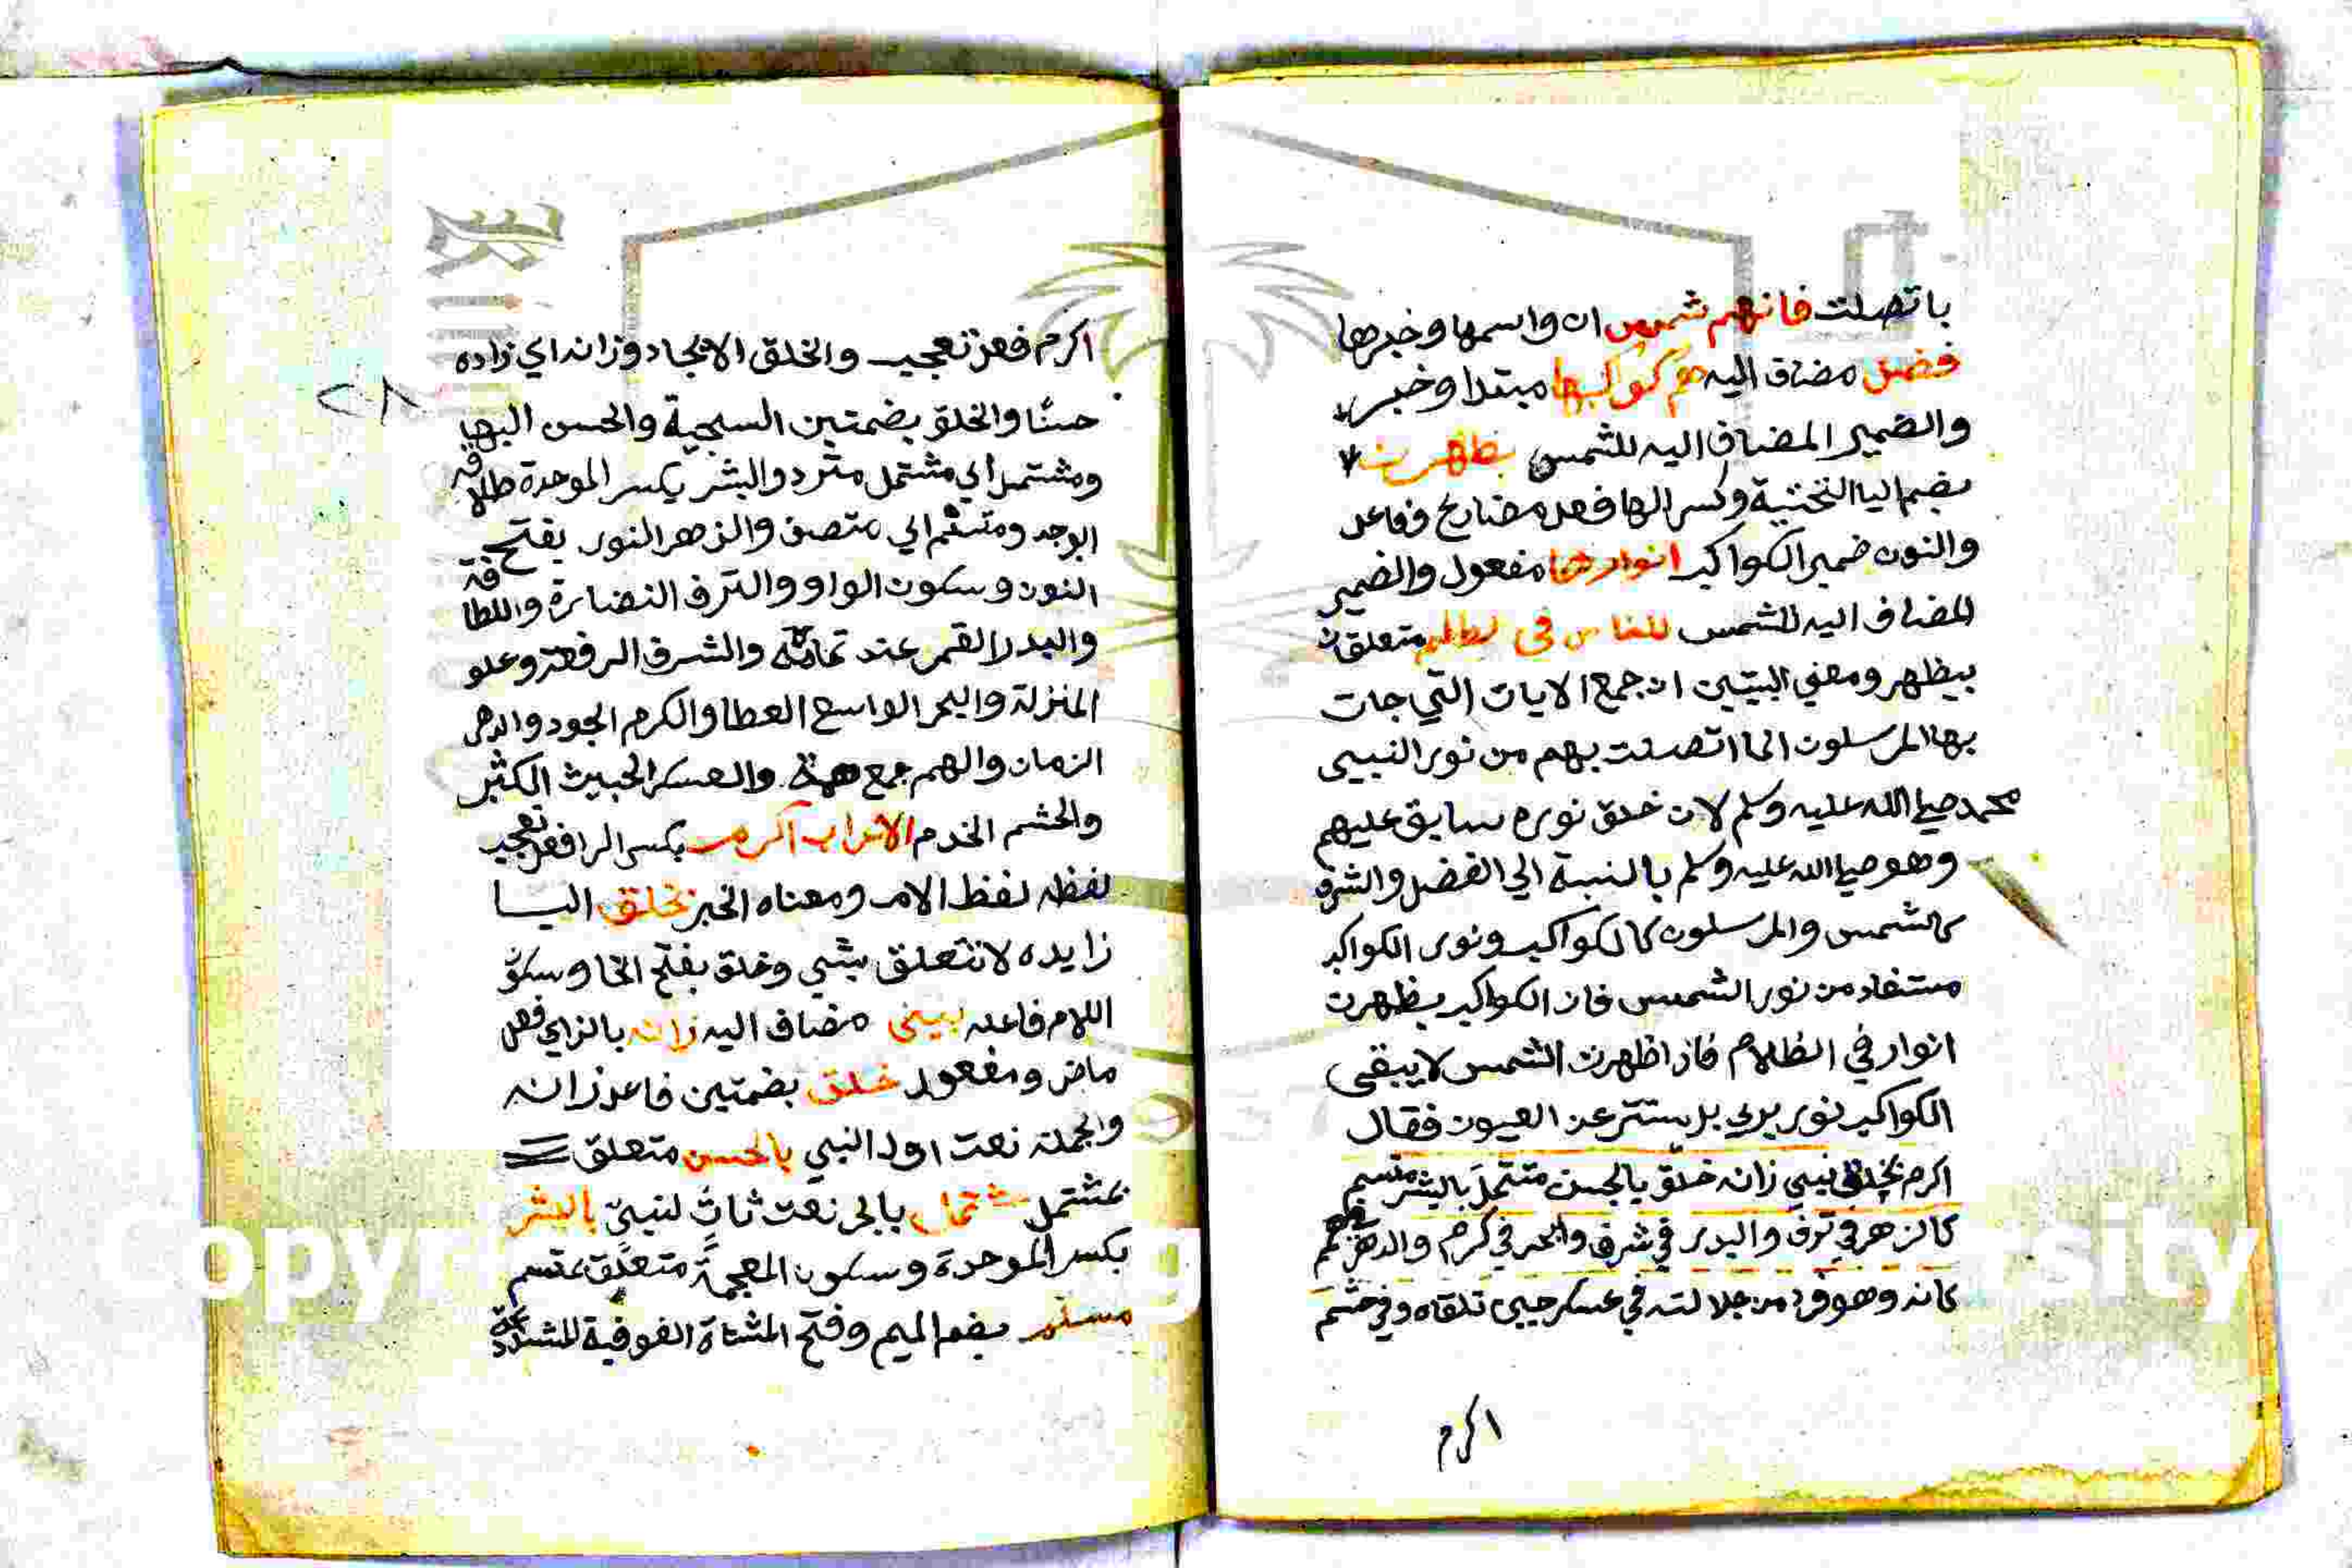 باتصلت فانهم شمس ان واسمها وخبرها
فضل مضاف اليه هم كواكبها مبتدا وخبر
والضمير المضاف اليه للشمس يظهرن
بضم اليا التحتية وكسر الها فعل مضارع وفاعل
والنون ضمير الكواكب انوارها مفعول والضمير
المضاف اليه للشمس للناس في الظلم متعلق
بيظهر ومعني البيتين ان جمع الايات التي جات
بها المرسلون انما اتصلت بهم من نور النبي
محمد صلي الله عليه وسلم لان خلق نوره سابق عليهم
وهو صلي الله عليه وسلم بالنسبة الي الفضل والشرف
كالشمس والمرسلون كالكواكب ونور الكواكب
مستفاد من نور الشمس فان الكواكب يظهرن
انوار في الظلام فاذا ظهرت الشمس لا يبقى
الكواكب نور يري بل يستتر عن العيون فقال
اكرم بخلق نبي زانه خلق بالحسن مشتمل بالبشر متسم
كالزهر في ترف والبدر في شرف والبحر في كرم والدهر في همم
كانه وهو فرد من جلالته في عسكر حين تلقاه وفي حشم
اكرم
٢٨
اكرم فعل تعجب والخلق الايجاد وزانه اي زاده
حسنًا والخلق بضمتين السجية والحسن البها
ومشتمل اي مشتمل متردد والبشر بكسر الموحدة طلاقه
الوجه ومتسم اي متصف والزهر النور بفتح
النون وسكون الواو والترف النضارة واللطافة
والبدر القمر عند تمامه والشرف الرفعة وعلو
المنزلة والبحر الواسع العطا والكرم الجود والدهر
الزمان والهمم جمع همة والعسكر الجيش الكثير
والحشم الخدم الاعراب اكرم بكسر الرا فعل تعجب
لفظه لفظ الامر ومعناه الخبر بخلق البا
زايده لا تتعلق بشي وخلق بفتح الخا وسكون
اللام فاعله نبي مضاف اليه زانه بالزاي فعل
ماض ومفعول خلق بضمتين فاعل زانه
والجملة نعت اول لنبي بالحسن متعلق
بمشتمل مشتمل بالجر نعت ثانٍ لنبيّ بالبشر
بكسر الموحدة وسكون المعجمة متعلق بمتسم
متسم بضم الميم وفتح المثناة الفوقية المشددة